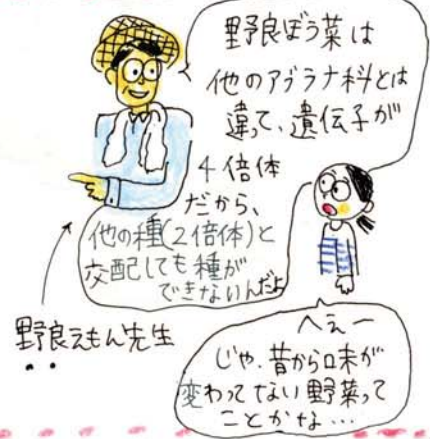 野良ぼう菜は
他のアブラナ科とは
違って、遺伝子が
4倍体
だから、
他の種(2倍体)と
交配しても種が
できないんだよ
野良えもん先生
へえー
じゃ、昔から味が
変わってない野菜って
ことかな…